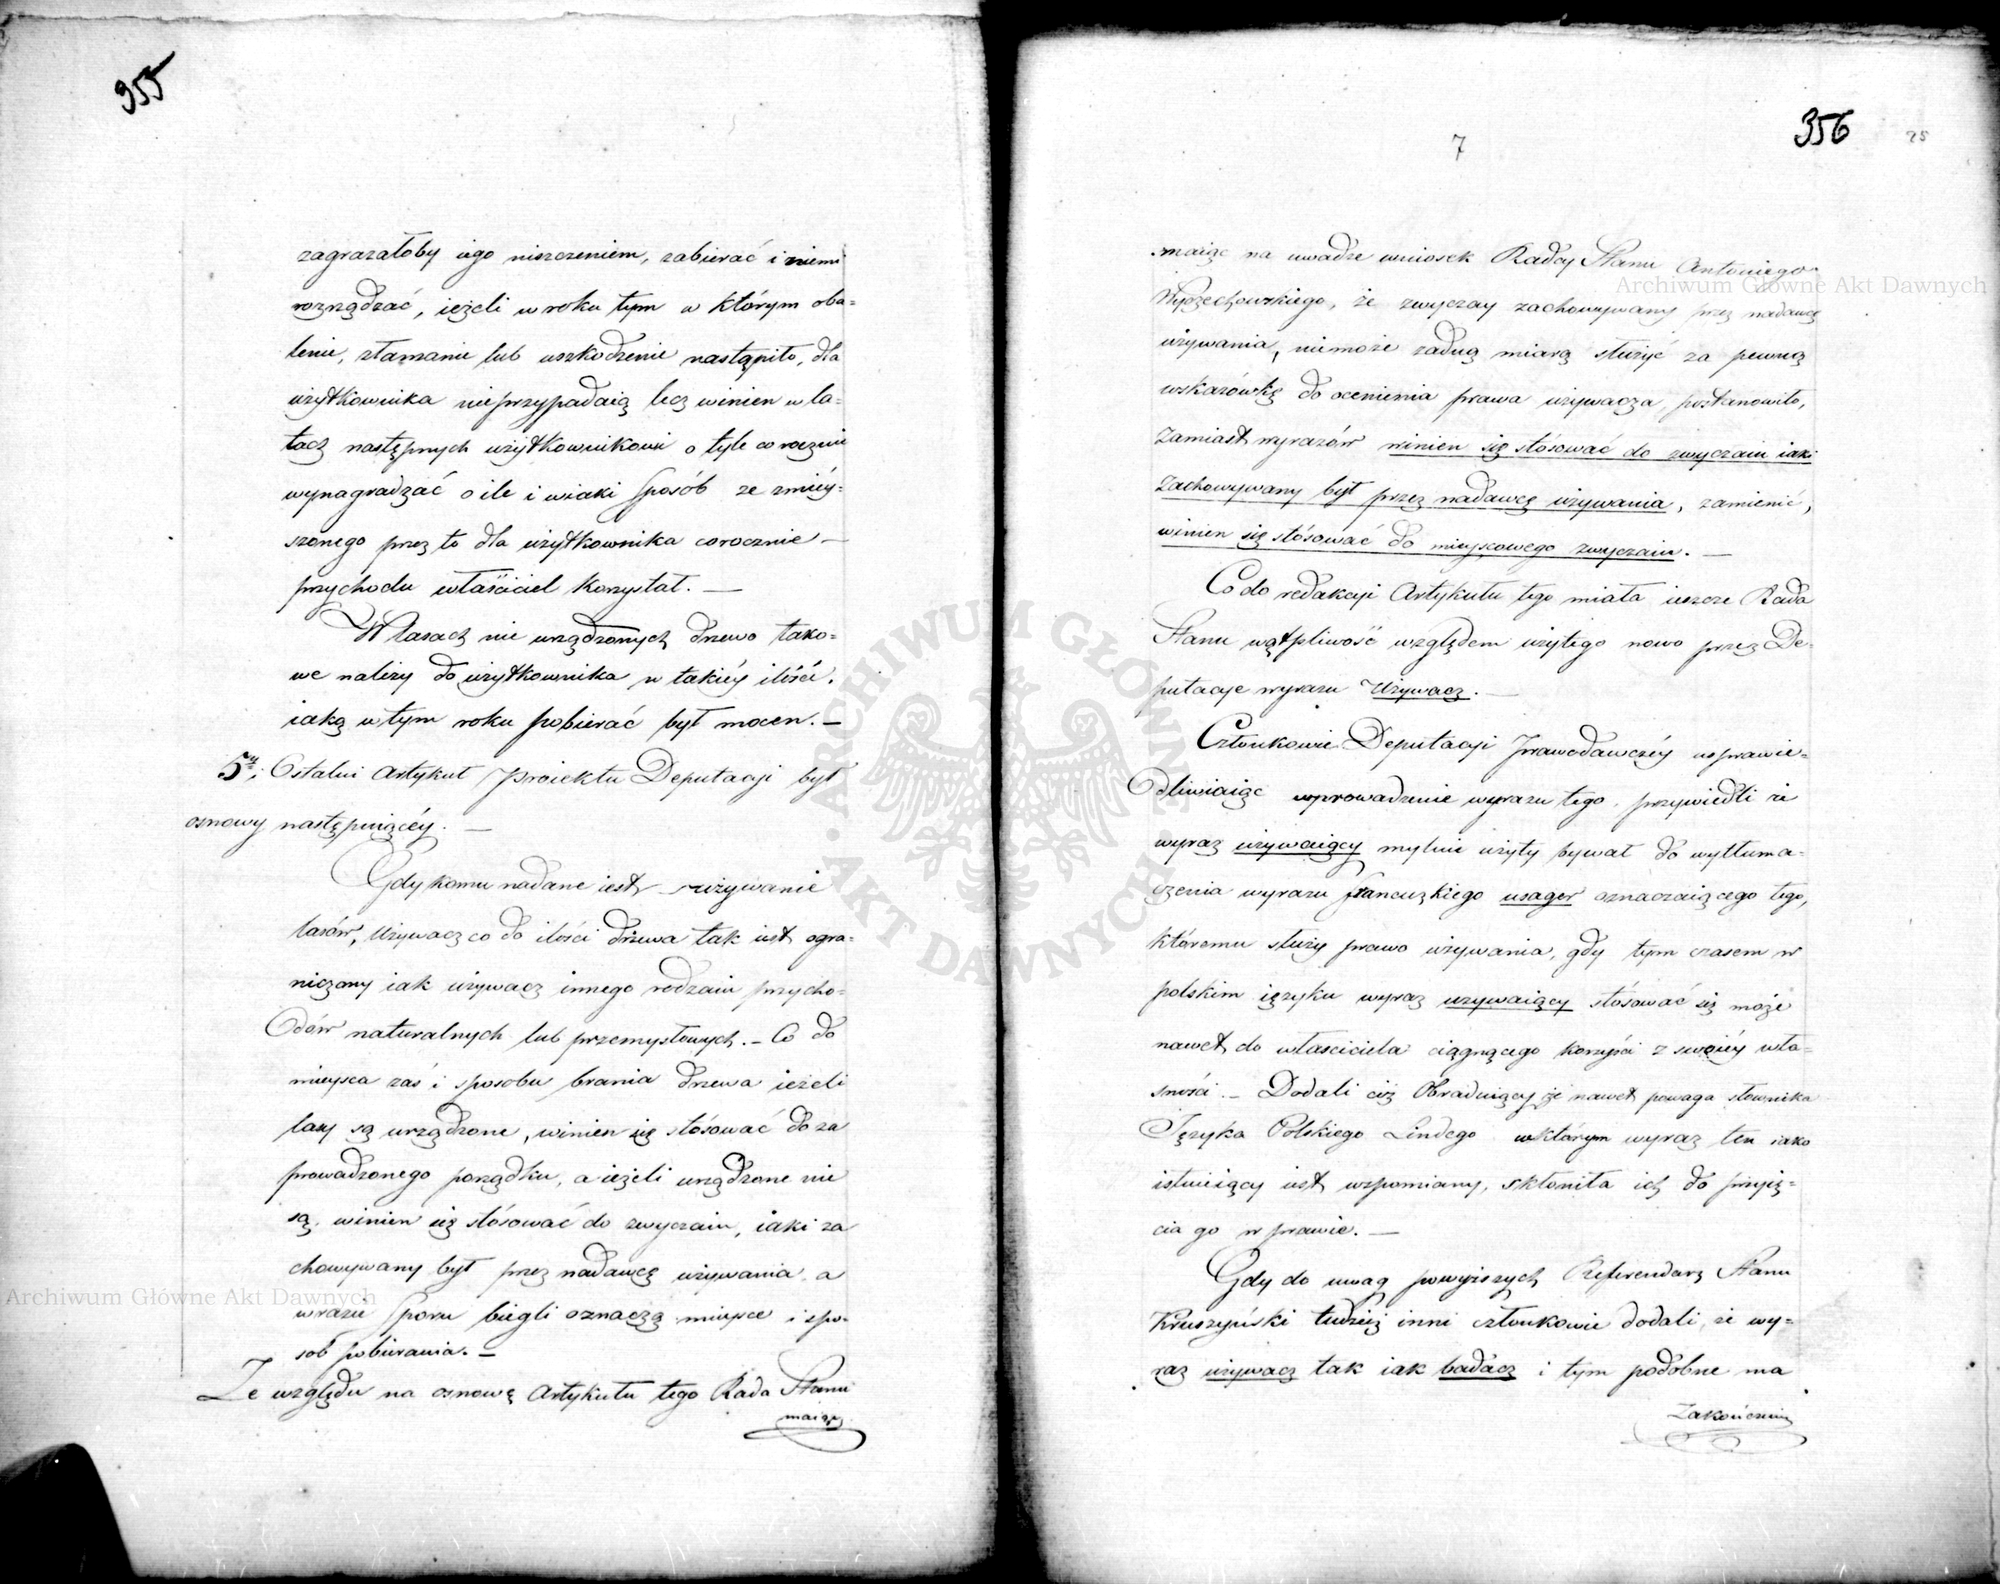 355
zagrażałoby iego niszczeniem, zabierać i niemi
rozrządzać, ieżeli w roku tym w którym oba-
lenie, złamanie lub uszkodzenie nastąpiło, dla
użytkownika nieprzypadaią lecz winien w la-
tach następnych użytkownikowi o tyle corocznie
wynagradzać o ile i wiaki sposób ze zmiéy-
szonego przez to dla użytkownika corocznie
przychodu właściciel korzystał. —
W lasach nie urządzonych drzewo tako-
we należy do użytkownika w takiéy ilości,
iaką w tym roku pobierać był mocen. —
5te; Ostatni Artykuł Proiektu Deputacji był
osnowy następuiącéy. —
Gdy komu nadane iest używanie
lasów, Używacz co do ilości drzewa tak iest ogra-
niczony iak używacz innego rodzaiu przycho-
dów naturalnych lub przemysłowych. — Co do
mieysca zaś i sposobu brania drzewa ieżeli
lasy są urządzone, winien się stósować do za
prowadzonego porządku, a ieżeli urządzone nie
są, winien się stósować do zwyczaiu, iaki za
chowywany był przez nadawcę używania, a
w razie sporu biegli oznaczą mieysce i spo-
sób pobierania. —
Ze względu na osnowę Artykułu tego Rada Stanu
maiąc
356
25
7
maiąc na uwadze wniosek Radcy Stanu Antoniego
Wyczechowskiego, że zwyczay zachowywany przez nadawcę
używania, niemoże żadną miarą służyć za pewną
wskazówkę do ocenienia prawa używacza, postanowiło,
zamiast wyrazów winien się stósować do zwyczaiu iaki
zachowywany był przez nadawcę używania, zamienić,
winien się stósować do mieyscowego zwyczaiu. —
Co do redakcji Artykułu tego miała ieszcze Rada
Stanu wątpliwość względem użytego nowo przez De-
putacje wyrazu Używacz. —
Członkowie Deputacji Prawodawczéy usprawie-
dliwiaiąc wprowadzenie wyrazu tego, przywiedli że
wyraz używaiący mylnie użyty bywał do wytłuma-
czenia wyrazu francuzkiego usager oznaczaiącego tego,
któremu służy prawo używania, gdy tym czasem w
polskim ięzyku wyraz używaiący stósować się może
nawet do właściciela ciągnącego korzyści z swoiéy wła-
sności. — Dodali ciż Obraduiący że nawet powaga słownika
Języka Polskiego Lindego w którym wyraz ten iako
istnieiący iest wspomiany, skłoniła ich do przyię-
cia go w prawie. —
Gdy do uwag powyższych Referendarz Stanu
Kruszyński tudzież inni członkowie dodali, że wy-
raz używacz tak iak badacz i tym podobne ma
zakończenie
Archiwum Główne Akt Dawnych
Archiwum Główne Akt Dawnych
ARCHIWUM GŁÓWNE AKT DAWNYCH